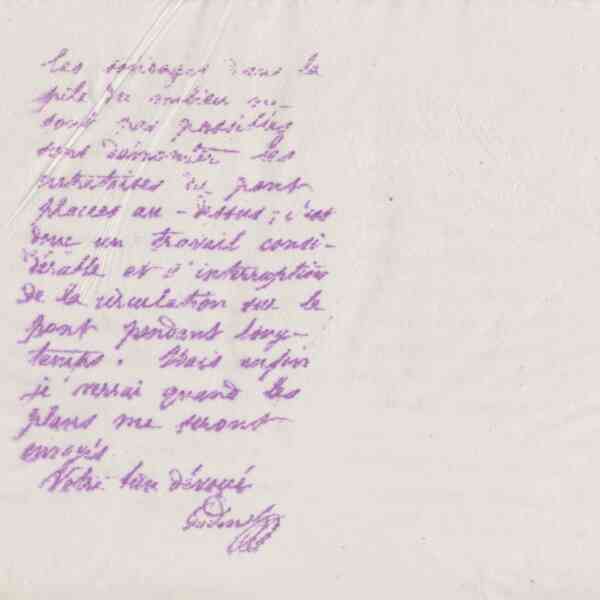 Les sondages dans la
pile du milieu ne
sont pas possibles
sans démonter les
maîtresses du pont
placées au-dessus ; c'est
donc un travail consi-
dérable et l'interruption
de la circulation sur le
pont pendant long-
temps. Mais enfin
je verrai quand les
plans me seront
envoyés
Votre bien dévoué